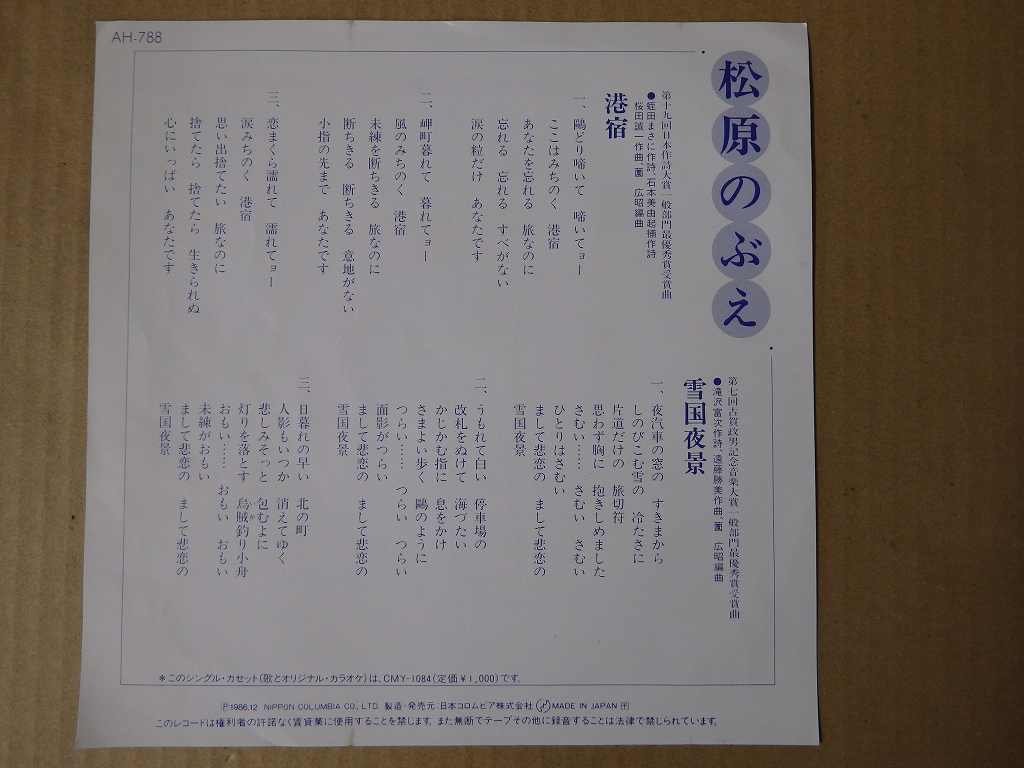 AH-788
松原のぶえ
第十九回日本作詩大賞一般部門最優秀賞受賞曲
港宿
●蛭田まさに作詩、石本美由起補作詩
桜田誠一作曲、薗 広昭編曲
一、鷗どり啼いて 啼いてョー
ここはみちのく 港宿
あなたを忘れる 旅なのに
忘れる 忘れる すべがない
涙の粒だけ あなたです
二、岬町暮れて 暮れてョー
風のみちのく 港宿
未練を断ちきる 旅なのに
断ちきる 断ちきる 意地がない
小指の先まで あなたです
三、恋まくら濡れて 濡れてョー
涙みちのく 港宿
思い出捨てたい 旅なのに
捨てたら 捨てたら 生きられぬ
心にいっぱい あなたです
第七回古賀政男記念音楽大賞一般部門最優秀賞受賞曲
●滝沢富次作詩、遠藤勝美作曲、薗 広昭編曲
雪国夜景
一、夜汽車の窓の すきまから
しのびこむ雪の 冷たさに
片道だけの 旅切符
思わず胸に 抱きしめました
さむい…… さむい さむい
ひとりはさむい
まして悲恋の まして悲恋の
雪国夜景
二、うもれて白い 停車場の
改札をぬけて 海づたい
かじかむ指に 息をかけ
さまよい歩く 鷗のように
つらい…… つらい つらい
面影がつらい
まして悲恋の まして悲恋の
雪国夜景
三、日暮れの早い 北の町
人影もいつか 消えてゆく
悲しみそっと 包むよに
灯りを落とす 烏賊釣り小舟
おもい…… おもい おもい
未練がおもい
まして悲恋の まして悲恋の
雪国夜景
＊このシングル・カセット(歌とオリジナル・カラオケ)は、CMY-1084(定価￥1,000)です。
Ⓟ1986.12 NIPPON COLUMBIA CO., LTD. 製造・発売元、日本コロムビア株式会社 MADE IN JAPAN
このレコードは権利者の許諾なく賃貸業に使用することを禁じます。また無断でテープその他に録音することは法律で禁じられています。